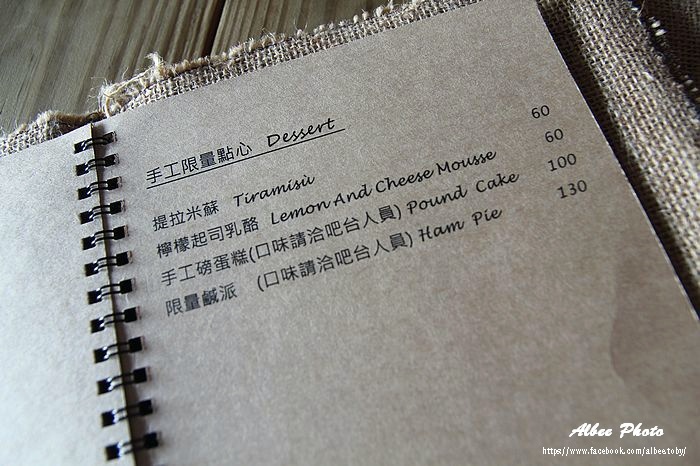 手工限量點心 Dessert
提拉米蘇 Tiramisù 60
檸檬起司乳酪 Lemon And Cheese Mousse 60
手工磅蛋糕(口味請洽吧台人員) Pound Cake 100
限量鹹派 (口味請洽吧台人員) Ham Pie 130
Albee Photo
https://www.facebook.com/albee.toby/